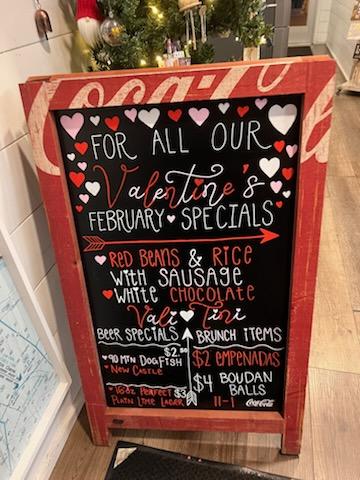 Coca-Cola
FOR ALL OUR
Valentine's
FEBRUARY SPECIALS
RED BEANS & RICE
WITH SAUSAGE
WHITE CHOCOLATE
Val Tini
BEER SPECIALS
BRUNCH ITEMS
$2.50
90 MIN DOGFISH
NEW CASTLE
$2 EMPENADAS
$4 BOUDAN
BALLS
16oz PERFECT $3
PLAIN LIME LAGER
11-1
Coca-Cola